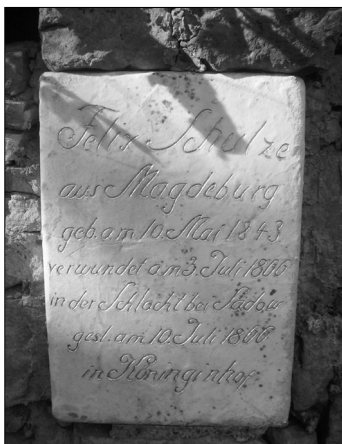 Felix Schulze
aus Magdeburg
geb. am 10. Mai 1843
verwundet am 3. Juli 1866
in der Schlacht bei Sadowa
gest. am 10. Juli 1866
in Königinhof